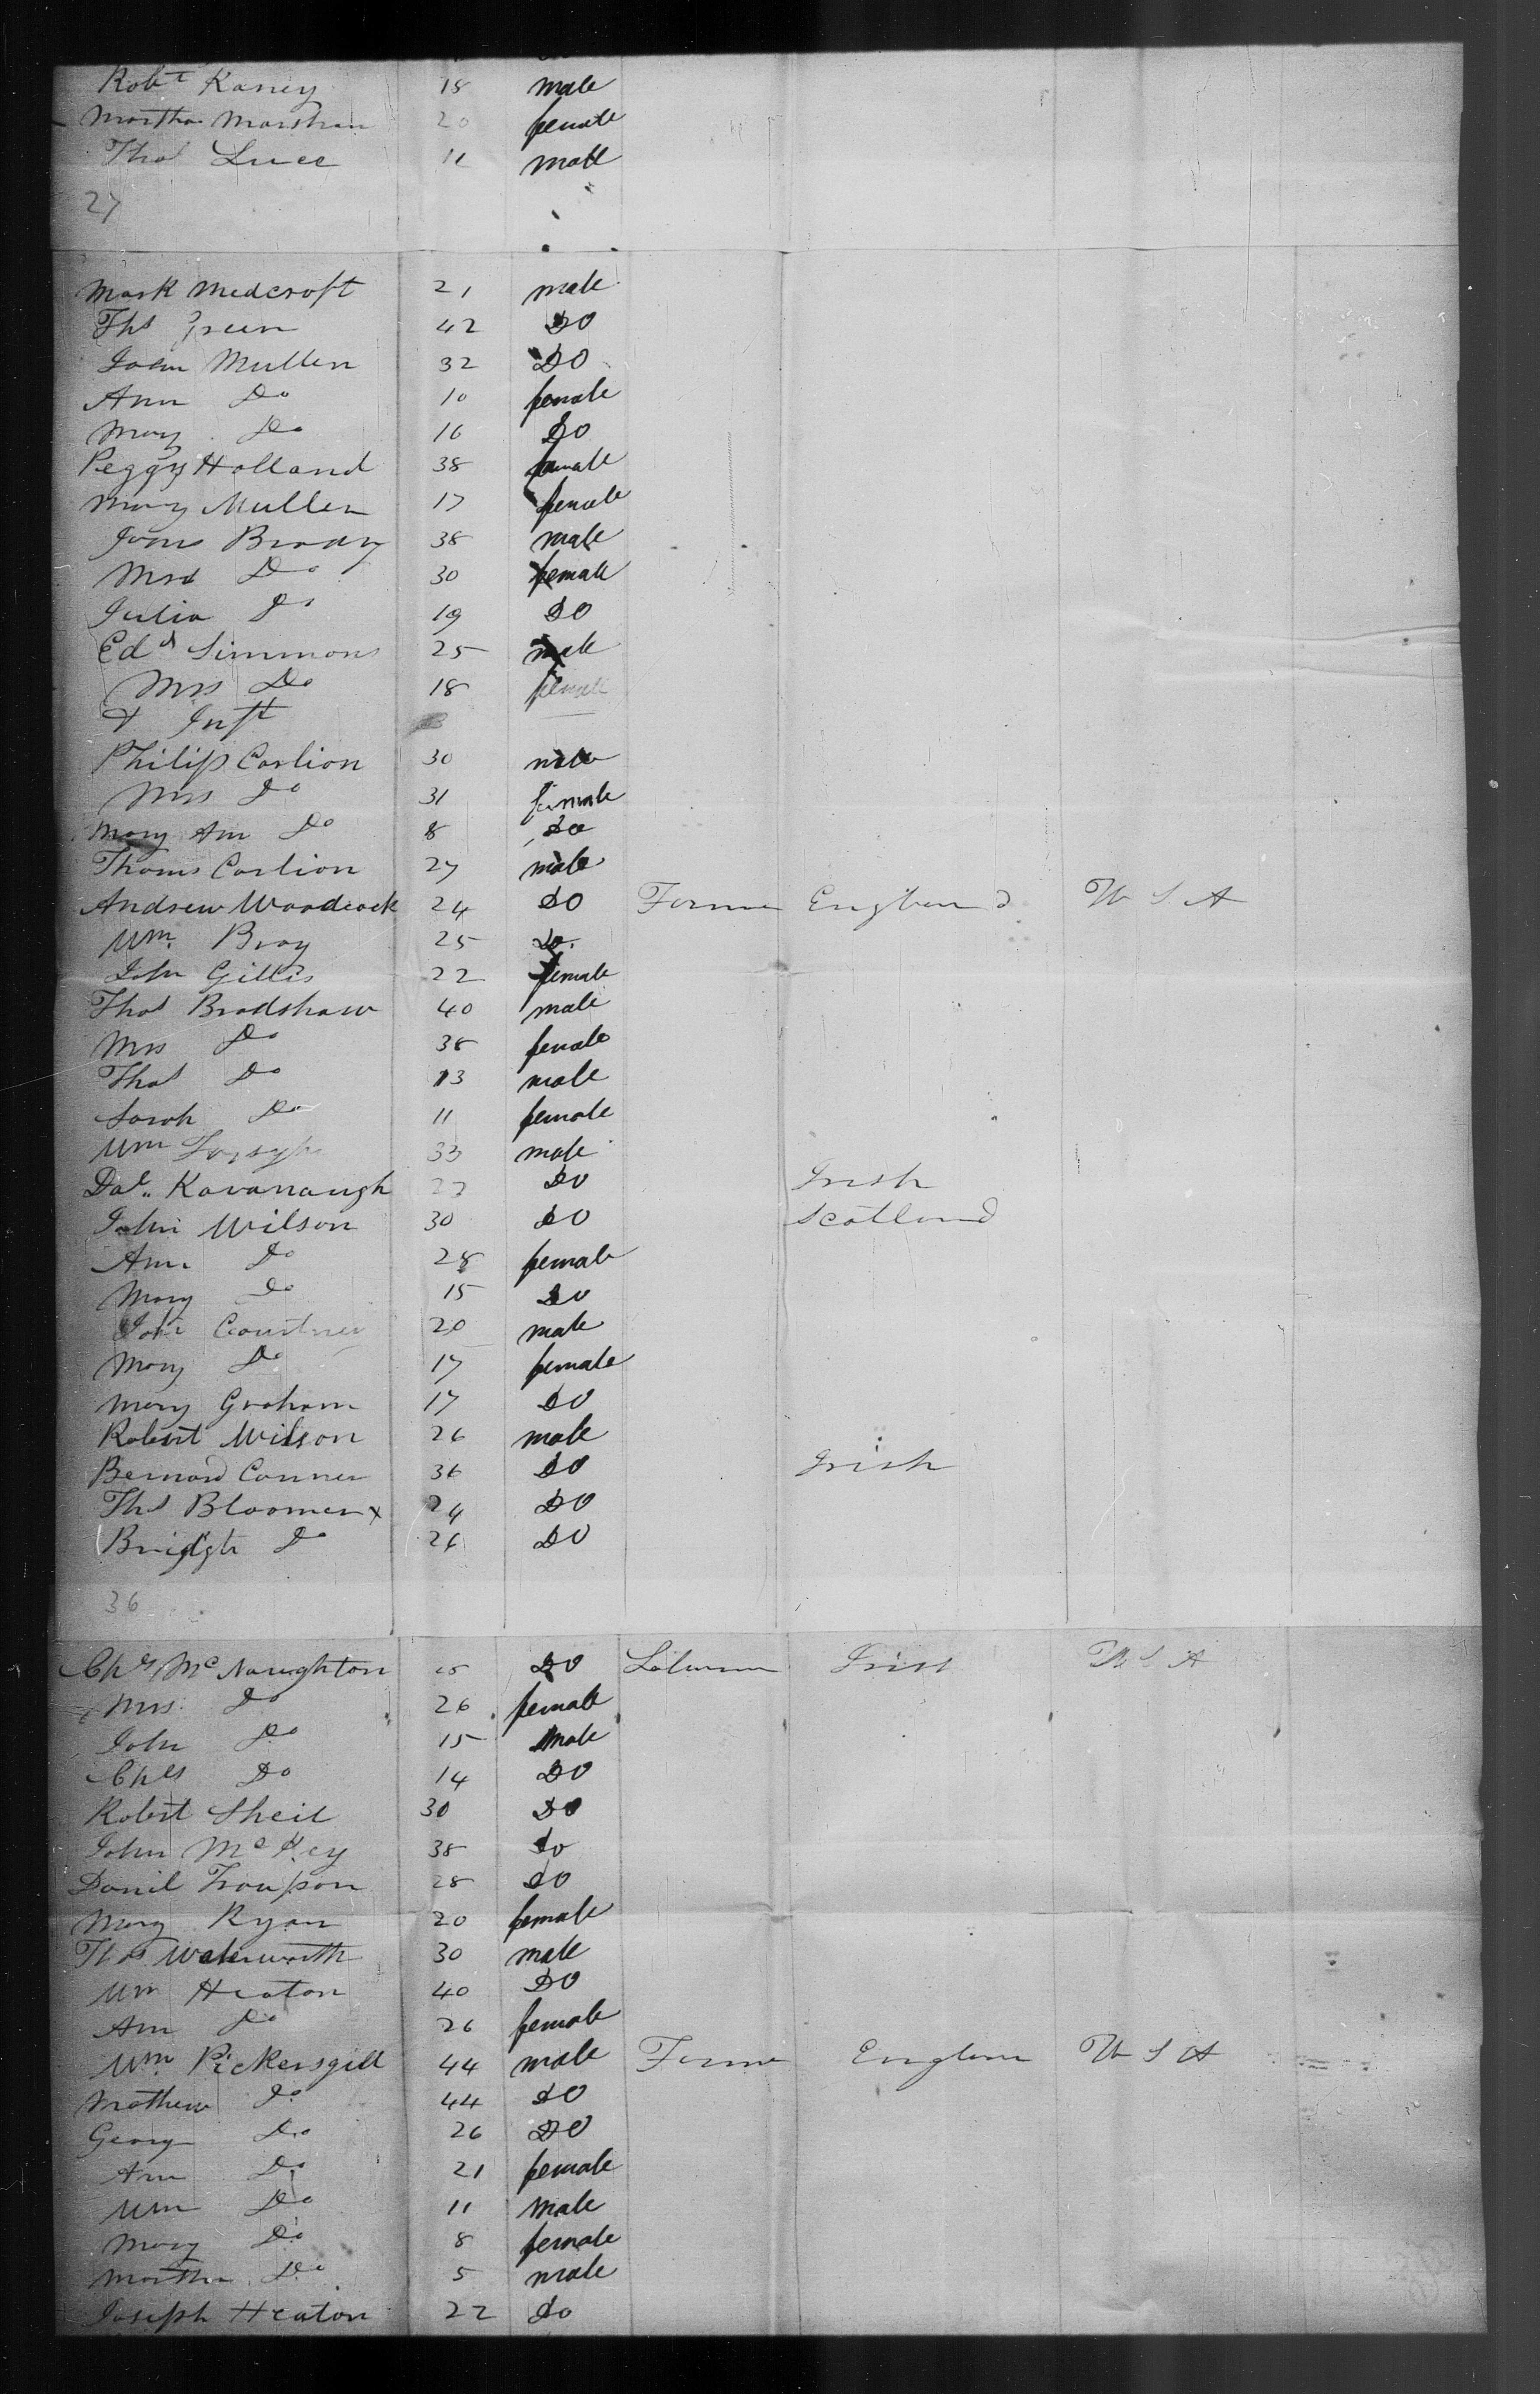 Robt Raney 18 male
Martha Marshan 20 female
Thos Luce 11 male
27
Mark Medcroft 21 male
Ths Green 42 Do
John Mullen 32 Do
Ann Do 10 female
Mary Do 16 Do
Peggy Holland 38 female
Mary Mullen 17 female
James Brady 38 male
Mrs Do 30 female
Julia Do 19 Do
Edd Simmons 25 male
Mrs Do 18 female
& Inft
Philip Carlion 30 male
Mrs Do 31 female
Mary Ann Do 8 Do
Thoms Carlion 27 male
Andrew Woodcock 24 Do Farmer England U S A
Wm Bray 25 Do
John Gillis 22 female
Thos Bradshaw 40 male
Mrs Do 38 female
Thos Do 13 male
Sarah Do 11 female
Wm 33 male
Dal Kavanaugh Do Irish
John Wilson 30 Do Scotland
Ann Do 28 female
Mary Do 15 Do
John Courtney 20 male
Mary Do 17 female
Mary Graham 17 Do
Robert Wilson 26 male
Bernard Conner 36 Do Irish
Ths Bloomer x 24 Do
Bridget Do 26 Do
36
Chs McNaughton Do Labourer Irish U S A
Mrs Do 26 female
John Do 15 male
Chls Do 14 Do
Robert Sheil 30 Do
John McKey 38 Do
Danil 28 Do
Mary Ryan 20 female
Thos Waterworth 30 male
Wm Heaton 40 Do
Ann Do 26 female
Wm Pickersgill 44 male Farmer England U S A
Mathew Do 44 Do
George Do 26 Do
Ann Do 21 female
Wm Do 11 male
Mary Do 8 female
Martha Do 5 male
Joseph Heaton 22 Do